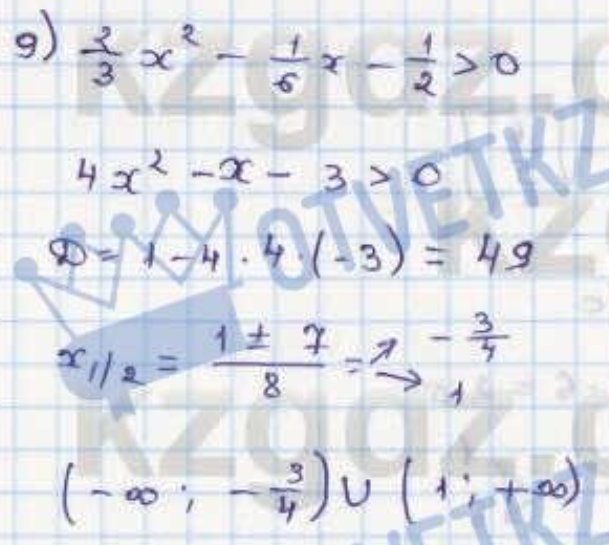 9) 2/3 x² - 1/6 x - 1/2 > 0
4x² - x - 3 > 0
D = 1 - 4 · 4 · (-3) = 49
x₁/₂ = (1 ± 7)/8 = ↗ - 3/4
→ 1
(-∞; -3/4) ∪ (1; +∞)
kzgaz.
OTVETKZ
kzgaz.